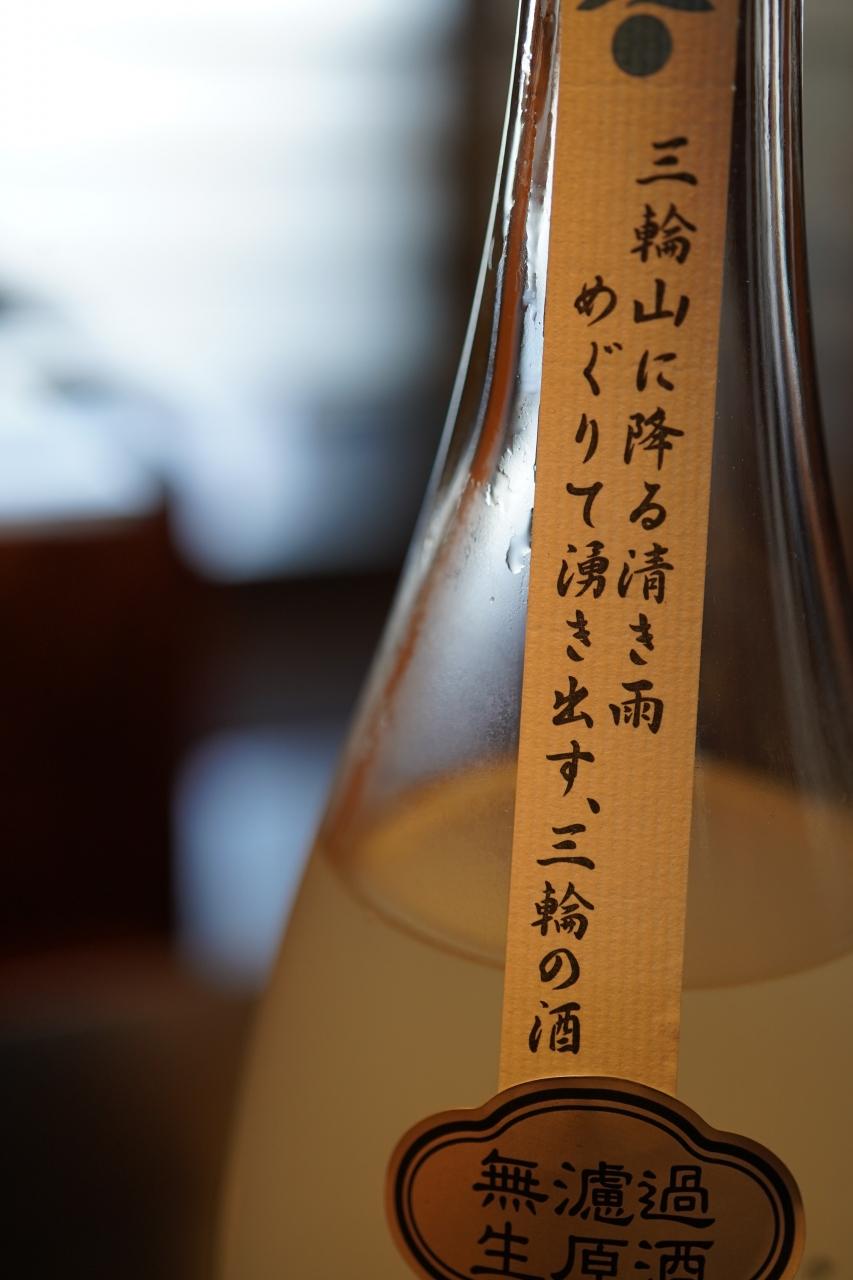 三輪山に降る清き雨
めぐりて湧き出す、三輪の酒
無濾過
生原酒